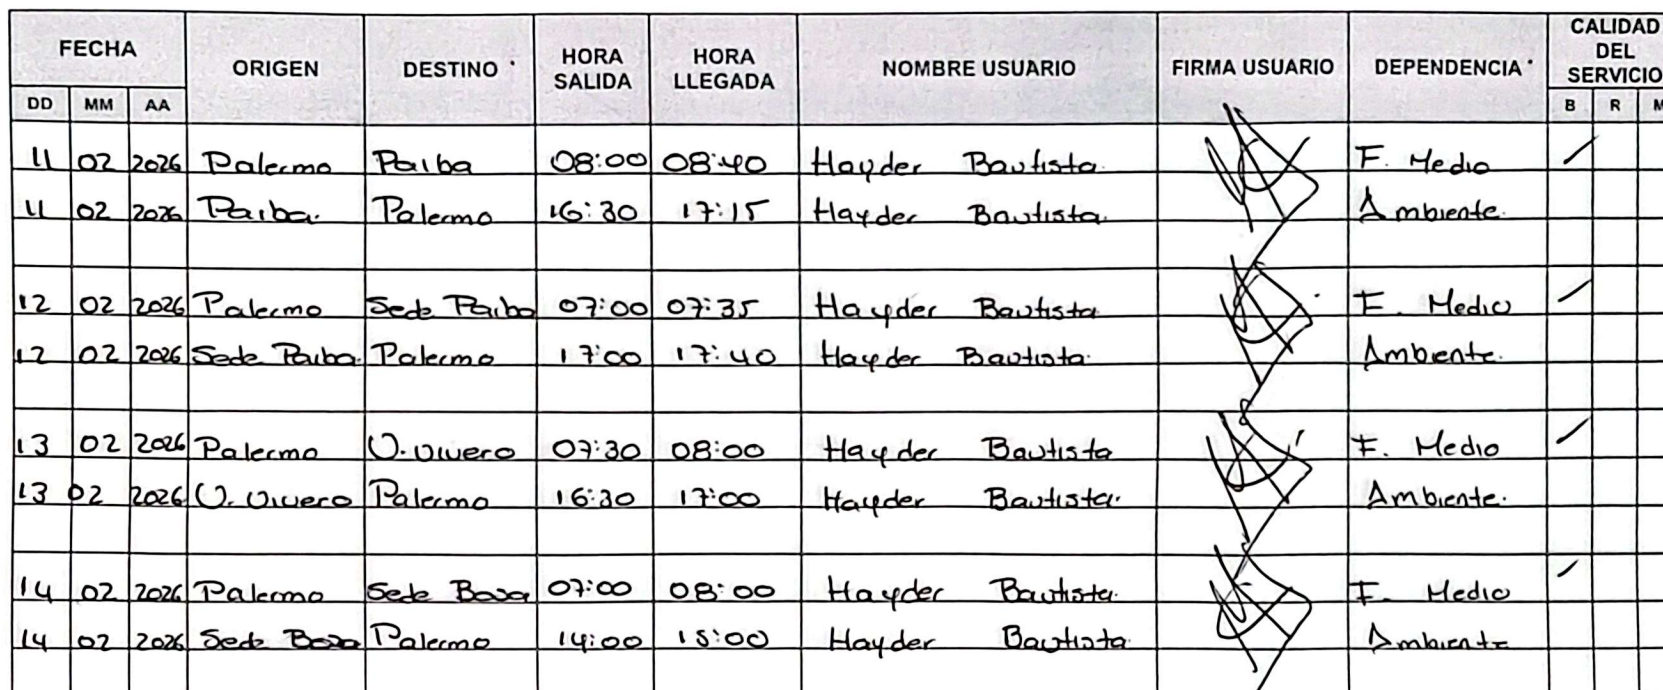 FECHA ORIGEN DESTINO HORA SALIDA HORA LLEGADA NOMBRE USUARIO FIRMA USUARIO DEPENDENCIA CALIDAD DEL SERVICIO
DD MM AA B R M
11 02 2026 Palermo Paiba 08:00 08:40 Hayder Bautista F. Medio
11 02 2026 Paiba Palermo 16:30 17:15 Hayder Bautista Ambiente
12 02 2026 Palermo Sede Paiba 07:00 07:35 Hayder Bautista F. Medio
12 02 2026 Sede Paiba Palermo 17:00 17:40 Hayder Bautista Ambiente
13 02 2026 Palermo U. Vivero 07:30 08:00 Hayder Bautista F. Medio
13 02 2026 U. Vivero Palermo 16:30 17:00 Hayder Bautista Ambiente
14 02 2026 Palermo Sede Bosa 07:00 08:00 Hayder Bautista F. Medio
14 02 2026 Sede Bosa Palermo 14:00 15:00 Hayder Bautista Ambiente